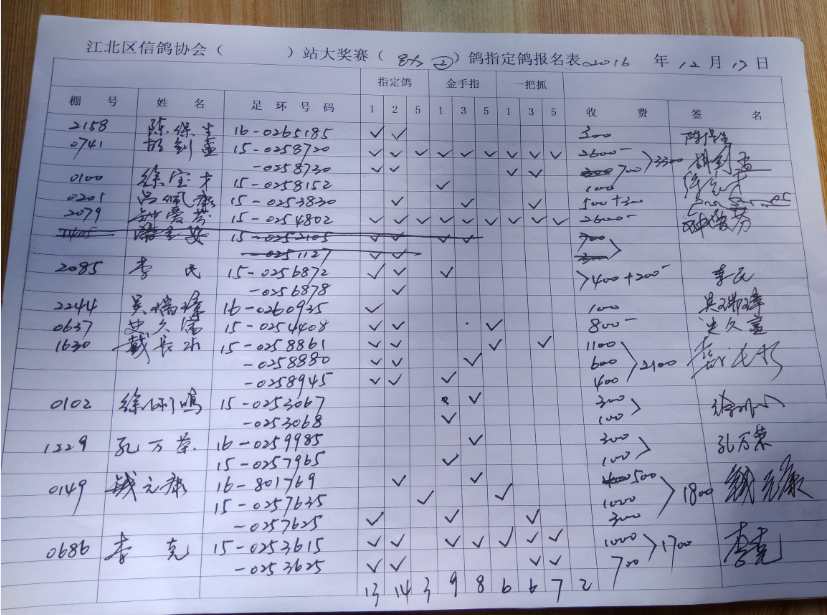 江北区信鸽协会（ ）站大奖赛（ ② ）鸽指定鸽报名表2016 年 12 月 17 日
指定鸽 金手指 一把抓
棚 号 姓 名 足 环 号 码 1 2 5 1 3 5 1 3 5 收 费 签 名
2158 陈保生 16-0265185 ✓ ✓ 300
0741 15-0258720 ✓ ✓ ✓ ✓ ✓ ✓ ✓ ✓ ✓ 2600- 3300
-0258730 ✓ ✓ ✓ ✓ 700
0100 徐宝才 15-0258152 ✓ 100
0201 吕佩康 15-0253830 ✓ ✓ ✓ 500+300
2079 15-0254802 ✓ ✓ ✓ ✓ ✓ ✓ ✓ ✓ ✓ 2600-
15-0252105 ✓ ✓ ✓ ✓ 700
-0251127 ✓ ✓ 300
2085 李民 15-0256872 ✓ ✓ ✓ >400+200- 李民
-0256878 ✓
2244 吴瑞璋 16-0260935 ✓ 100 吴瑞璋
0637 史久富 15-0254408 ✓ ✓ ✓ 800-
1630 戴长水 15-0258861 ✓ ✓ ✓ ✓ 1100
-0258880 ✓ ✓ ✓ 600 2100
-0258945 ✓ ✓ ✓ 400
0102 徐 鸣 15-0253067 ✓ 300
-0253068 ✓ 100
1229 孔万荣 16-0259985 ✓ 300 孔万荣
15-0257965 ✓ 100
0149 钱元康 16-801769 ✓ ✓ 500 钱元康
15-0257635 ✓ ✓ 1000 1800
-0257625 ✓ ✓ ✓ 300
0686 李克 15-0253615 ✓ ✓ ✓ ✓ ✓ ✓ ✓ 1000 >1700 李克
-0253625 ✓ ✓ ✓ ✓ 700
13 14 3 9 8 6 6 7 2